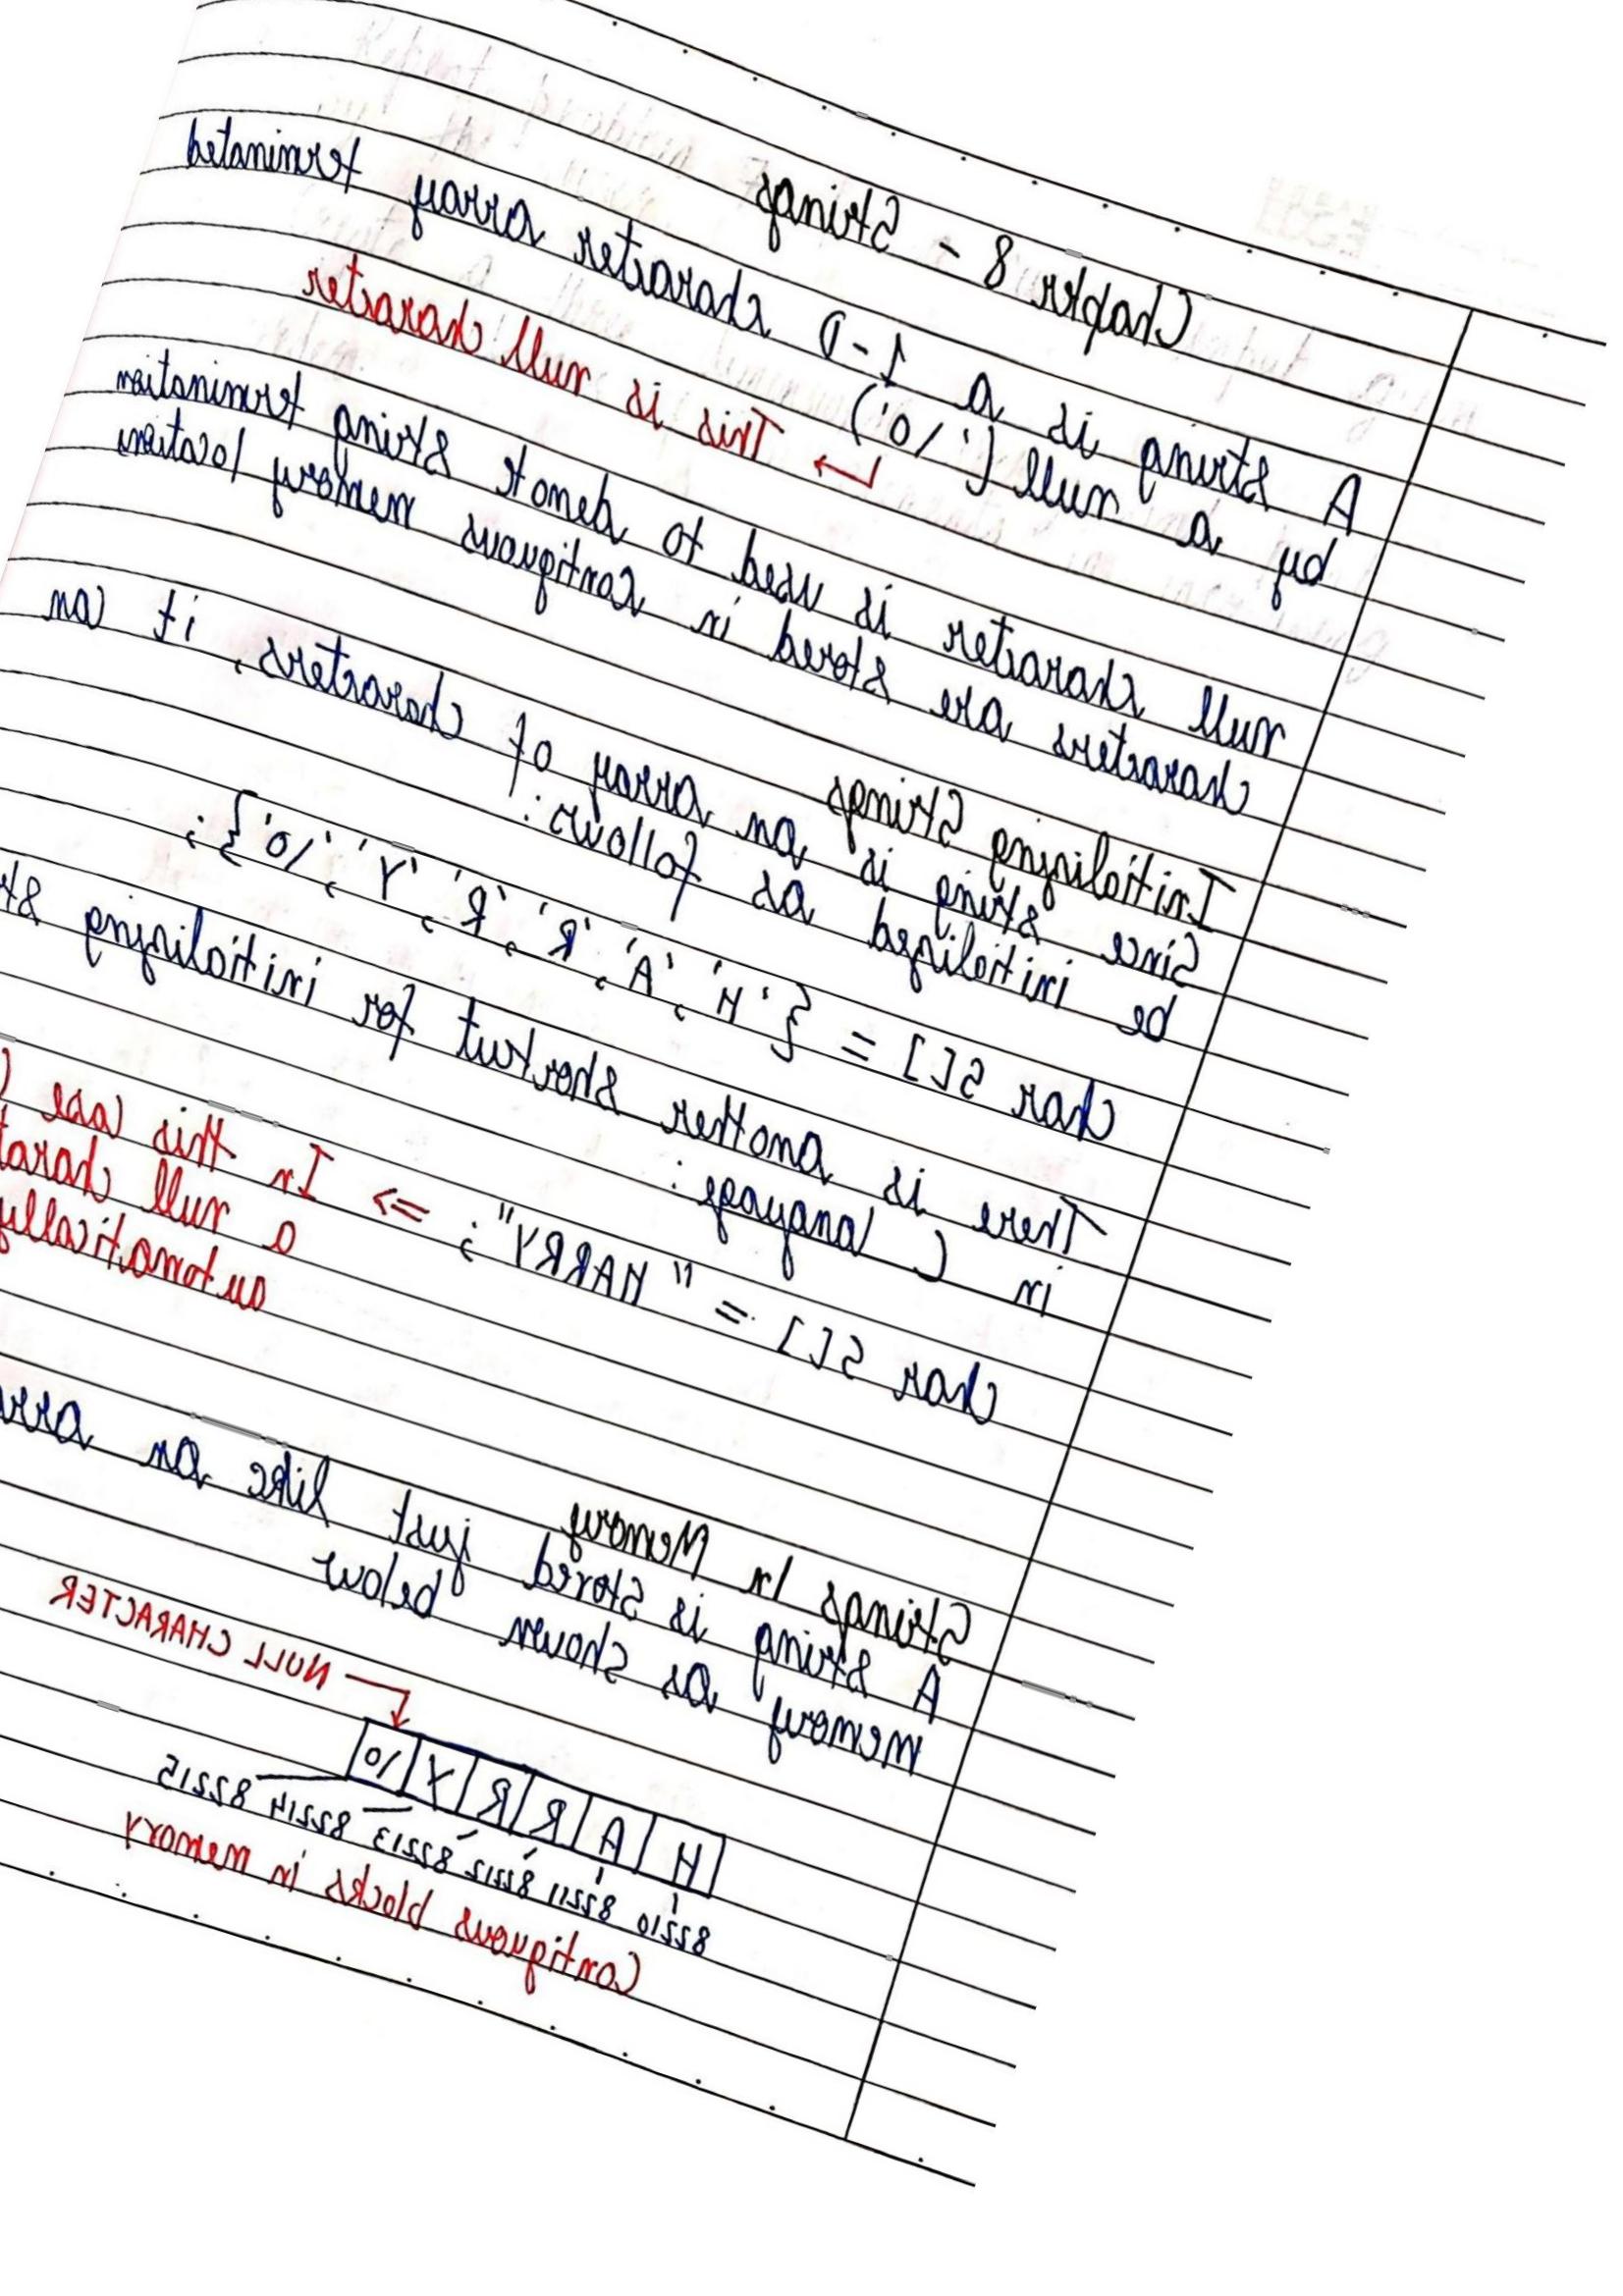 Chapter 8 - Strings
A string is a 1-D character array terminated
by a null ('\0')
↳ This is null character
null character is used to denote string termination
characters are stored in contiguous memory locations
Initializing Strings
Since string is an array of characters, it can
be initialized as follows:
char S[] = {'H', 'A', 'R', 'R', 'Y', '\0'};
There is another shortcut for initializing
in C language:
char S[] = "HARRY"; => In this case
a null
automatically
Strings In Memory
A string is stored just like an
memory as shown below
NULL CHARACTER
H A R R Y \0
82210 82211 82212 82213 82214 82215
Contiguous blocks in memory